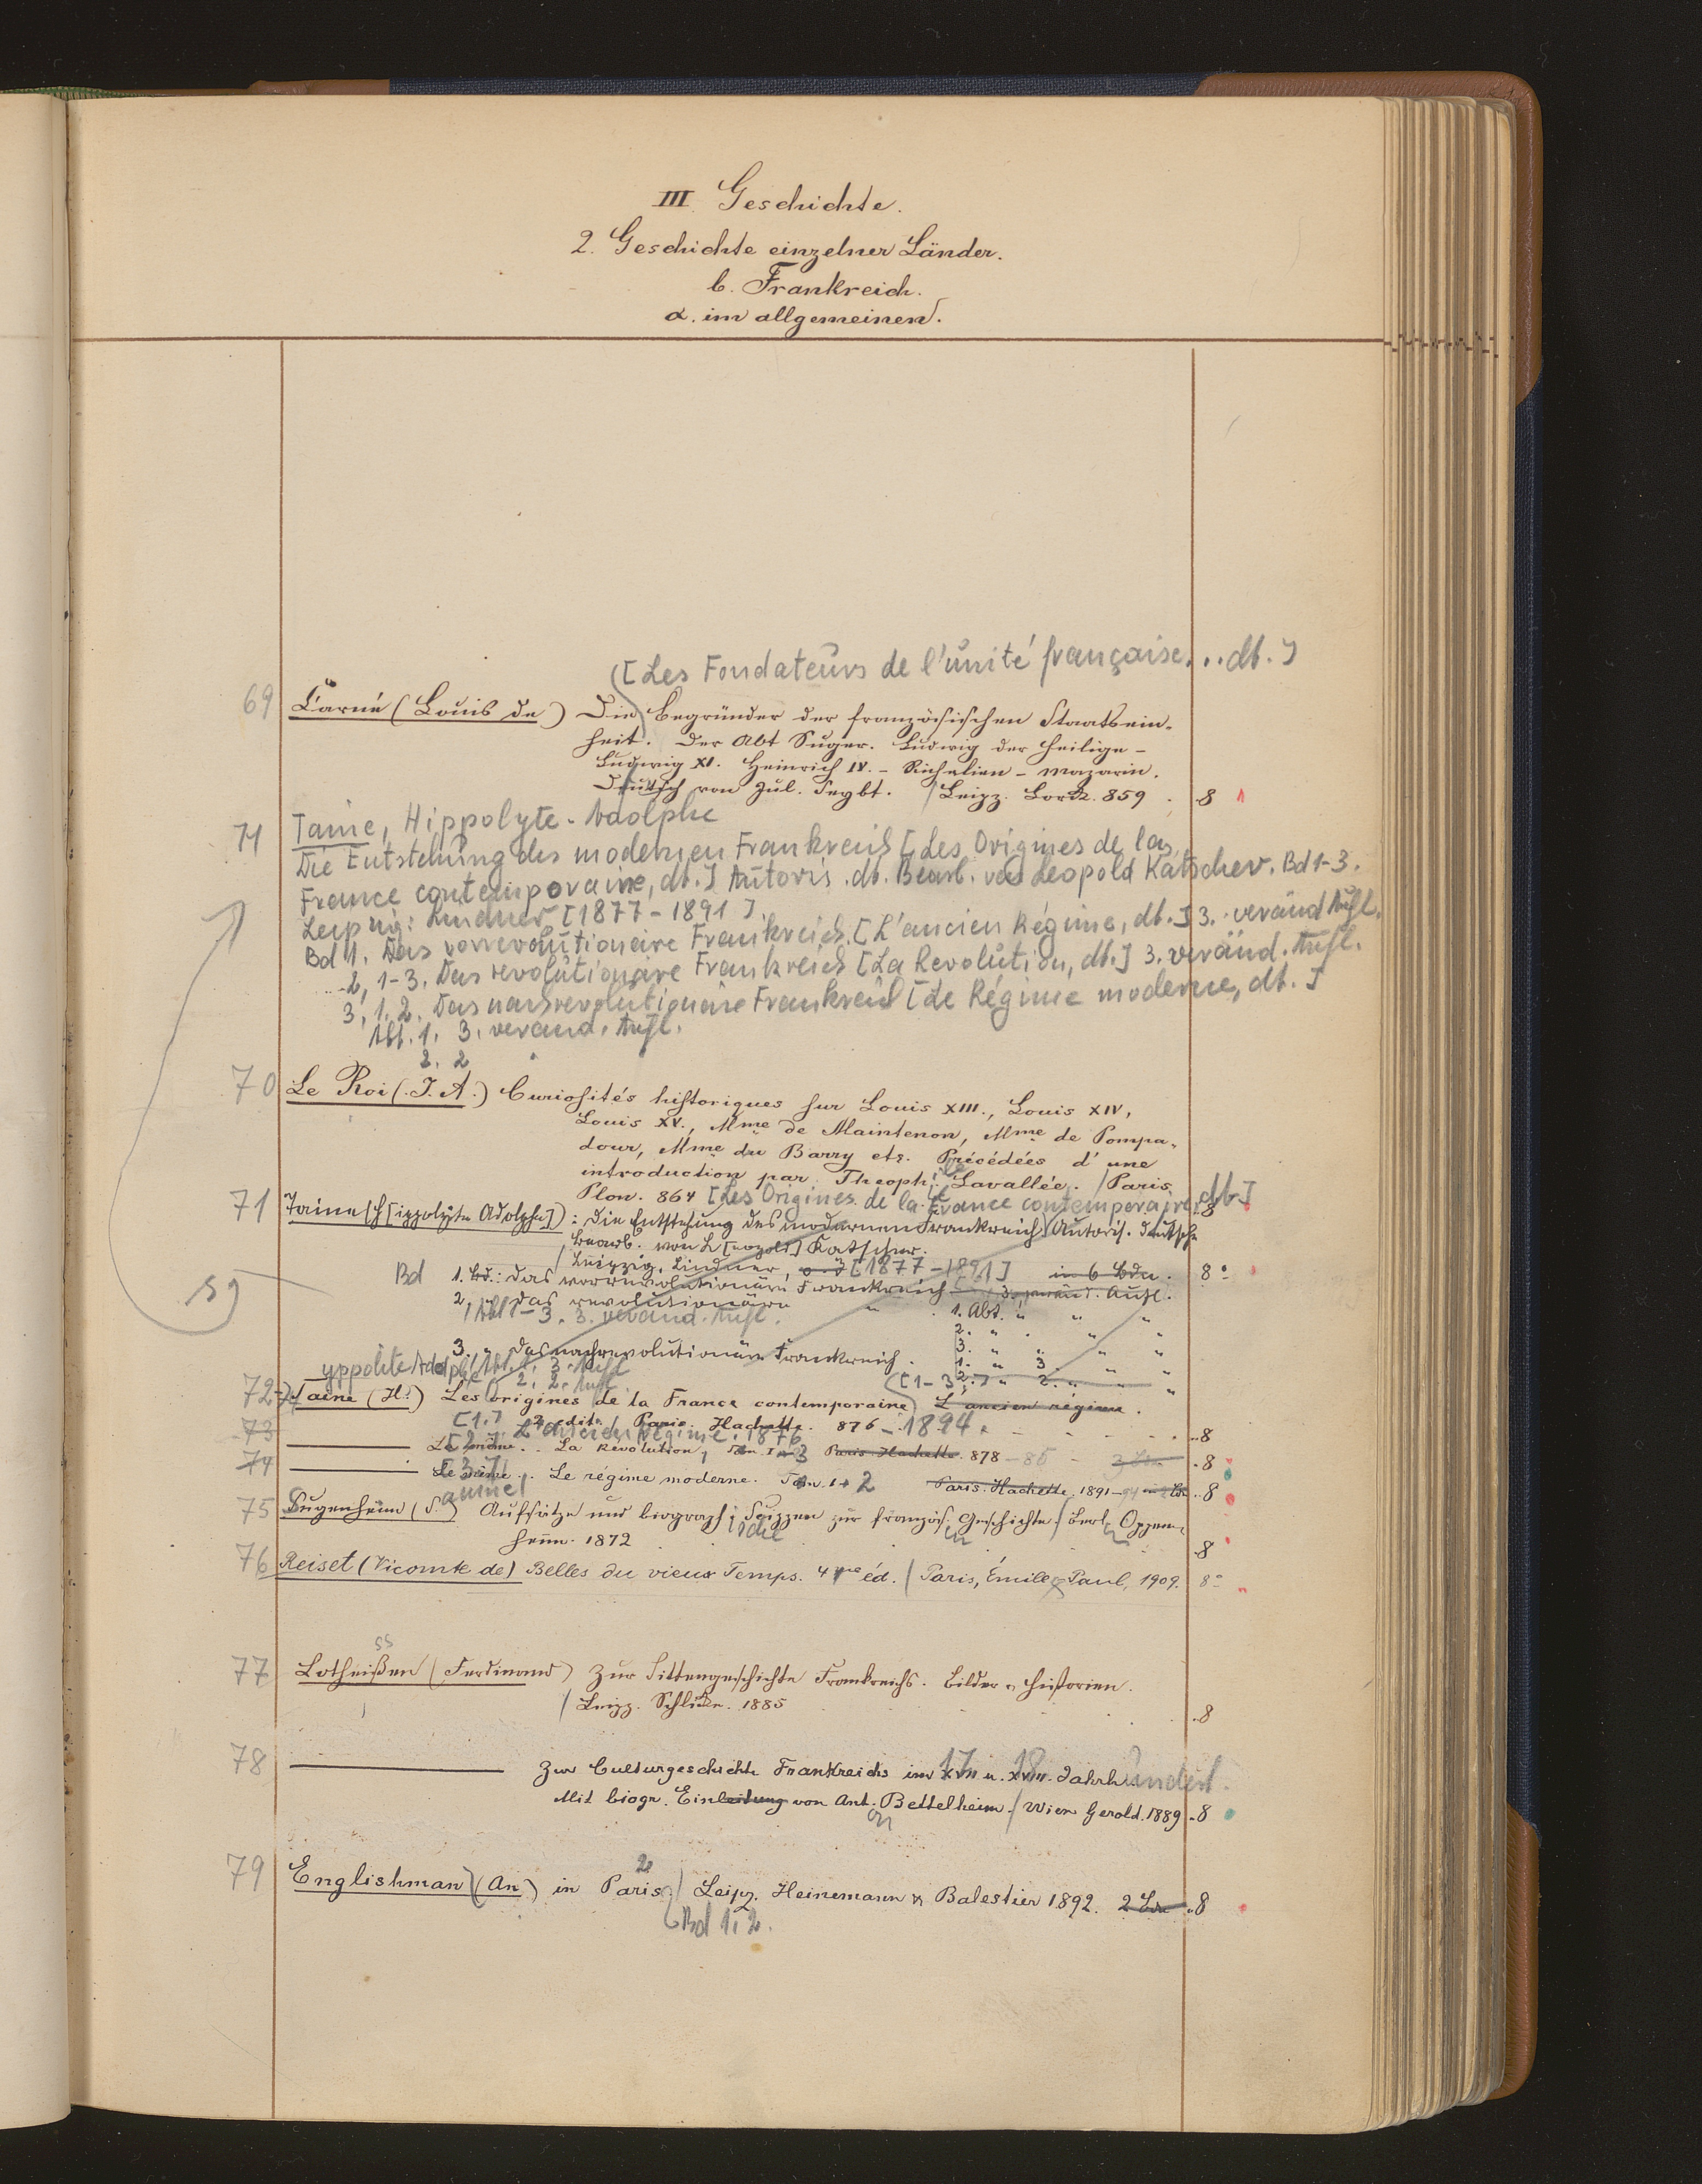 III Geschichte.
2. Geschichte einzelner Länder.
b. Frankreich.
α. im allgemeinen.
[Les Fondateurs de l'unité française... dt.]
69 Carné (Louis de) Die Begründer der französischen Staatsein-
heit. Der Abt Suger. Ludwig der Heilige –
Ludwig XI. Heinrich IV. – Richelieu – Mazarin.
Deutsch von Jul. Seybt. / Leipz. Lorck. 859 . 8
71 Taine, Hippolyte-Adolphe
Die Entstehung des modernen Frankreich [Les Origines de la
France contemporaine, dt.] Autoris. dt. Bearb. von Leopold Katscher. Bd 1-3.
Leipzig: Lindner [1877-1891].
Bd 1. Das vorrevolutionäre Frankreich. [L'ancien Régime, dt.] 3. veränd. Aufl.
2, 1-3. Das revolutionäre Frankreich [La Revolution, dt.] 3. veränd. Aufl.
3, 1.2. Das nachrevolutionäre Frankreich [Le Régime moderne, dt.]
Abt. 1. 3. veränd. Aufl.
2. 2 "
70 Le Roi (J. A.) Curiosités historiques sur Louis XIII., Louis XIV,
Louis XV., Mme de Maintenon, Mme de Pompa-
dour, Mme du Barry etc. Précédées d'une
introduction par Theoph. Lavallée. / Paris
Plon. 864 [Les Origines de la France contemporaine, dt.] 8
71 Taine (H[ippolyte Adolphe]): Die Entstehung des modernen Frankreich. Autoris. deutsche
Bearb. von L[eopold] Katscher.
Leipzig, Lindner, o. J. [1877-1891] in 6 Bdn. 8°
Bd 1. Bd.: Das vorrevolutionäre Frankreich 3. veränd. Aufl.
2. " Das revolutionäre " 1. Abt. " " "
Abt 1-3. 3. veränd. Aufl. 2. " " " "
3. " " " "
3. " Das nachrevolutionäre Frankreich. 1. " 3. " "
yppolite Adolphe Abt. 1. 3. Aufl 2. " 2. " "
2. 2. Aufl. [1-3.]
72 Taine (H.) Les origines de la France contemporaine L'ancien régime.
73 [1.] 2e édit. Paris. Hachette. 876-1894. 8
L'ancien régime. 1876
Le même. . La Révolution, Tom. 1-3 Paris Hachette. 878-85 - 3 Bde 8
74 [3.] Le même. . Le régime moderne. Tom. 1+2 Paris. Hachette. 1891-94 2 Bde 8
amuel
75 Sugenheim (S.) Aufsätze und biograph. Skizzen zur französ. Geschichte / Berl. Oppen-
heim. 1872 8
76 Reiset (Vicomte de) Belles du vieux Temps. 4me éd. / Paris, Émile Paul, 1909. 8°
ss
77 Lotheißen (Ferdinand) Zur Sittengeschichte Frankreichs. Bilder u. Historien.
/ Leipz. Schlicke. 1885 8
78 Zur Culturgeschichte Frankreichs im XVII u. XVIII. Jahrhundert.
17. 18.
Mit biogr. Einleitung von Ant. Bettelheim. / Wien Gerold. 1889 8
79 Englishman (An) in Paris. / Leipz. Heinemann & Balestier 1892. 2 Bde 8
Bd 1.2.